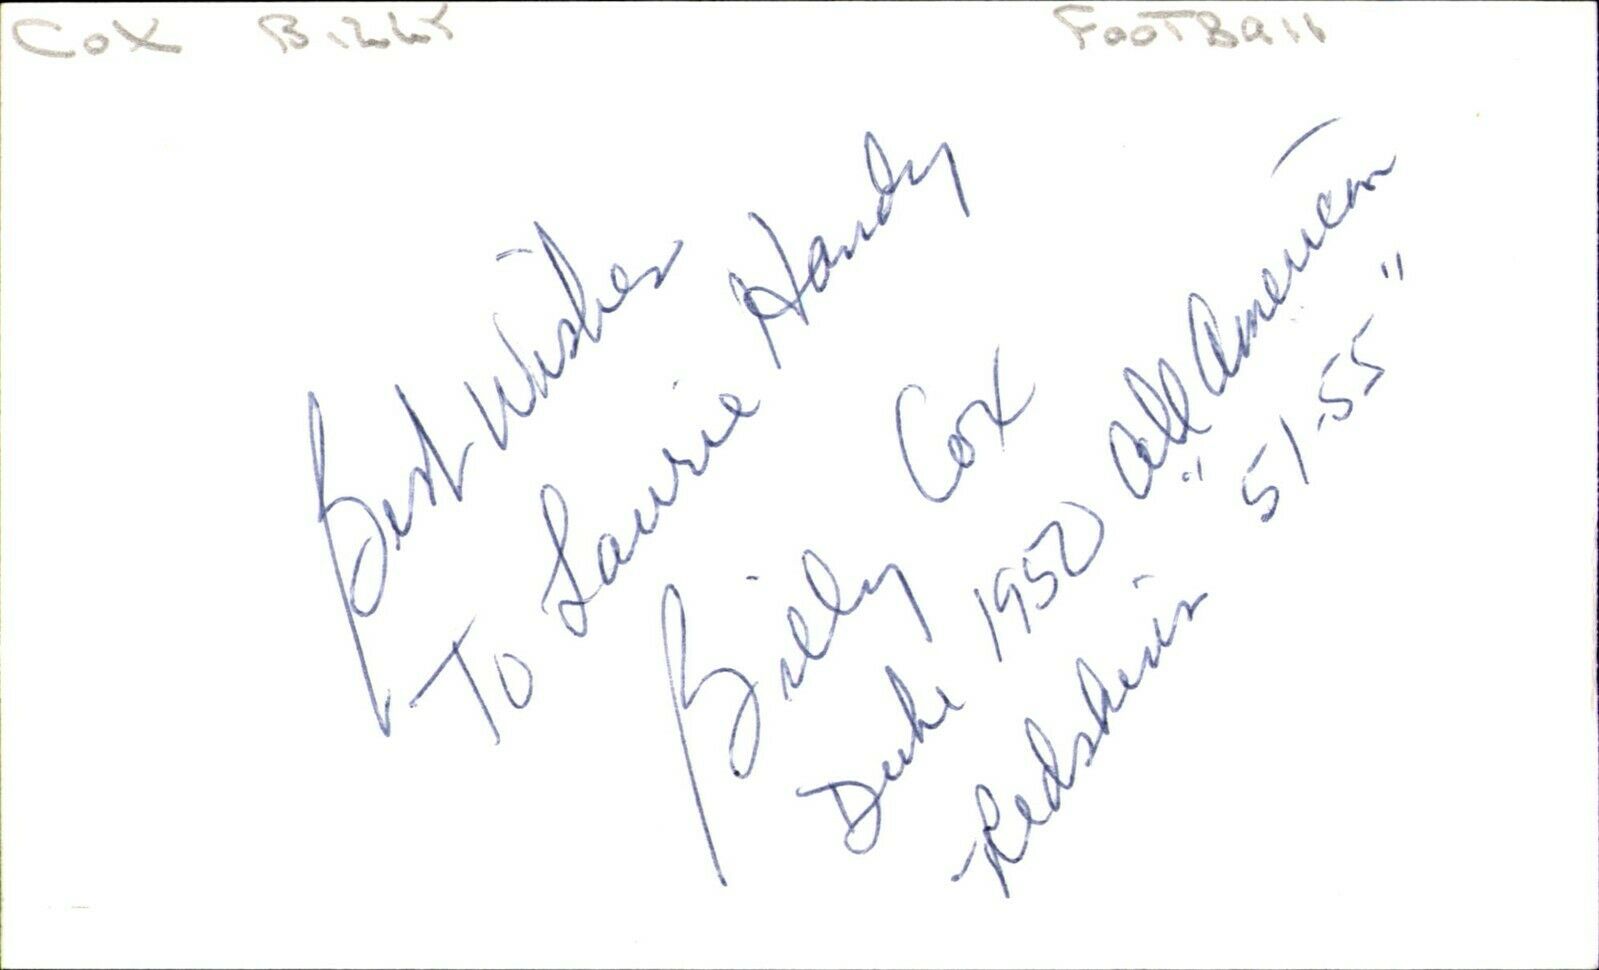 Cox Billy FootBall
Best Wishes
To Laurie Handy
Billy Cox
Duke 1950 "All American"
Redskins 51-55